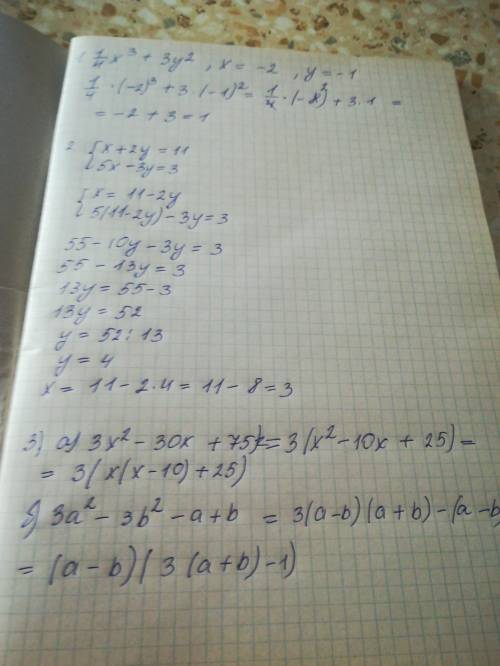 1. 1/4 x³ + 3y², x = -2, y = -1
1/4 · (-2)³ + 3 · (-1)² = 1/4 · (-8²) + 3·1 =
= -2 + 3 = 1
2. { x + 2y = 11
{ 5x - 3y = 3
{ x = 11 - 2y
{ 5(11-2y) - 3y = 3
55 - 10y - 3y = 3
55 - 13y = 3
13y = 55 - 3
13y = 52
y = 52 : 13
y = 4
x = 11 - 2·4 = 11 - 8 = 3
3) а) 3x² - 30x + 75 = 3(x² - 10x + 25) =
= 3(x(x-10) + 25)
б) 3a² - 3b² - a + b = 3(a-b)(a+b) - (a-b)
= (a-b)(3(a+b) - 1)